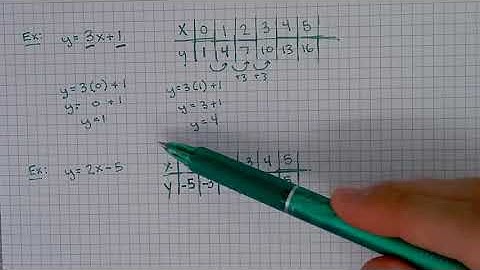 Ex: y=3x+1
X 0 1 2 3 4 5
y 1 4 7 10 13 16
+3 +3
y=3(0)+1
y= 0 +1
y=1
y=3(1)+1
y=3+1
y=4
Ex: y=2x-5
X 3 4 5
y -5 -3 5